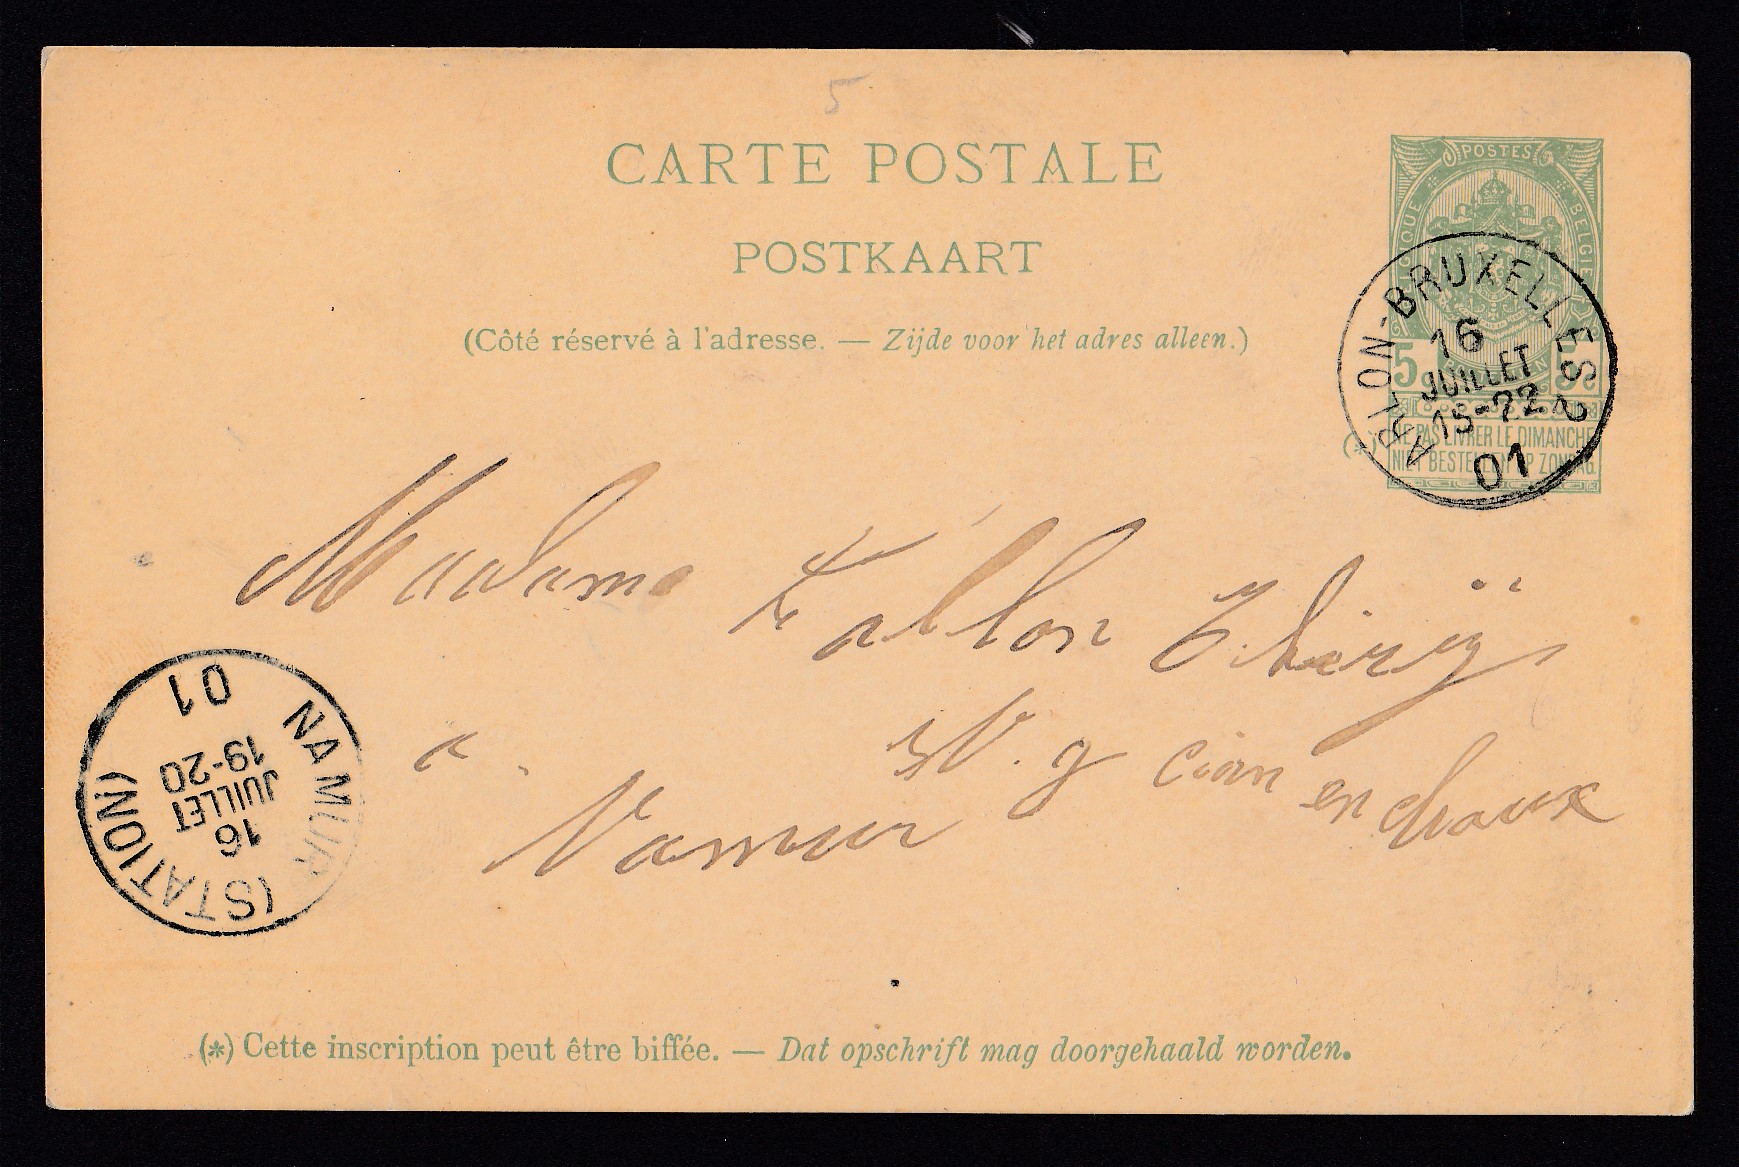 5
CARTE POSTALE
POSTKAART
(Côté réservé à l'adresse. — Zijde voor het adres alleen.)
POSTES
BELGIQUE BELGIE
5c 5c
(*) NE PAS LIVRER LE DIMANCHE
NIET BESTELLEN OP ZONDAG.
ARLON-BRUXELLES 2
16
JUILLET
15-22
01
Madame Fallon
à
Namur
NAMUR (STATION)
16
JUILLET
19-20
01
(*) Cette inscription peut être biffée. — Dat opschrift mag doorgehaald worden.